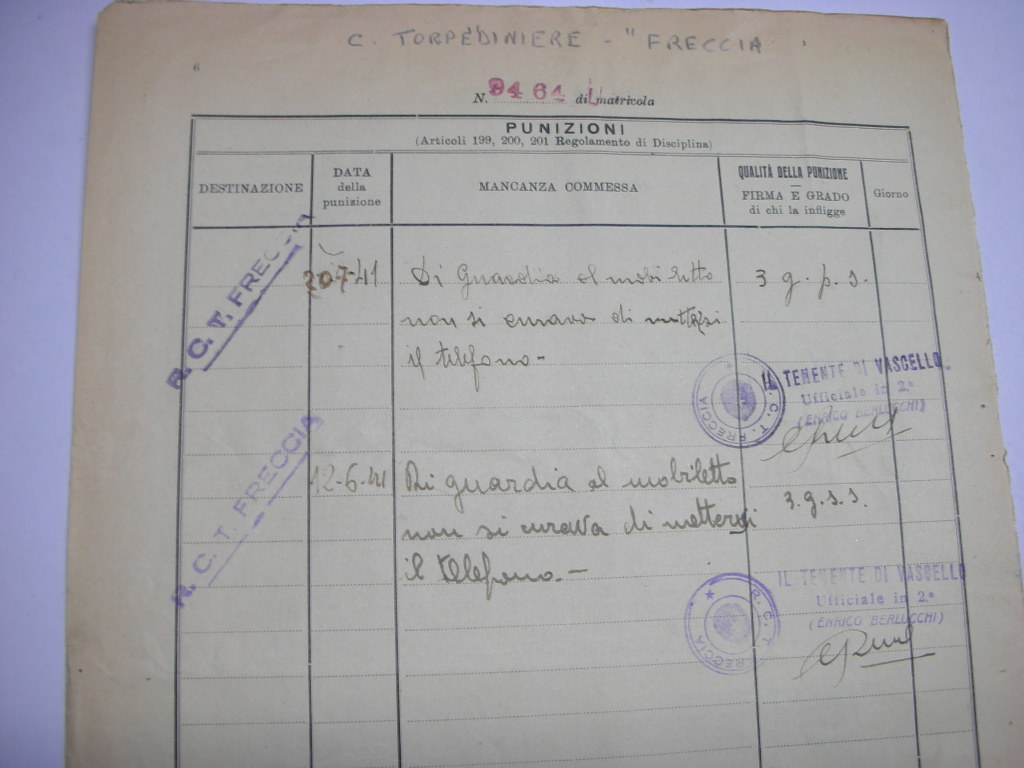 C. TORPEDINIERE - "FRECCIA
6
N. 9464 di matricola
PUNIZIONI
(Articoli 199, 200, 201 Regolamento di Disciplina)
DESTINAZIONE
DATA
della
punizione
MANCANZA COMMESSA
QUALITÀ DELLA PUNIZIONE
FIRMA E GRADO
di chi la infligge
Giorno
R. C. T. FRECCIA
20-7-41
Di Guardia al mobiletto
non si curava di mettersi
il telefono -
3 g. p. s.
R. C. T. FRECCIA
IL TENENTE DI VASCELLO
Ufficiale in 2.ª
(ENRICO BERLUCCHI)
R. C. T. FRECCIA
12-6-41
Di guardia al mobiletto
non si curava di mettersi
il telefono. -
3. g. s. s.
R. C. T. FRECCIA
IL TENENTE DI VASCELLO
Ufficiale in 2.ª
(ENRICO BERLUCCHI)